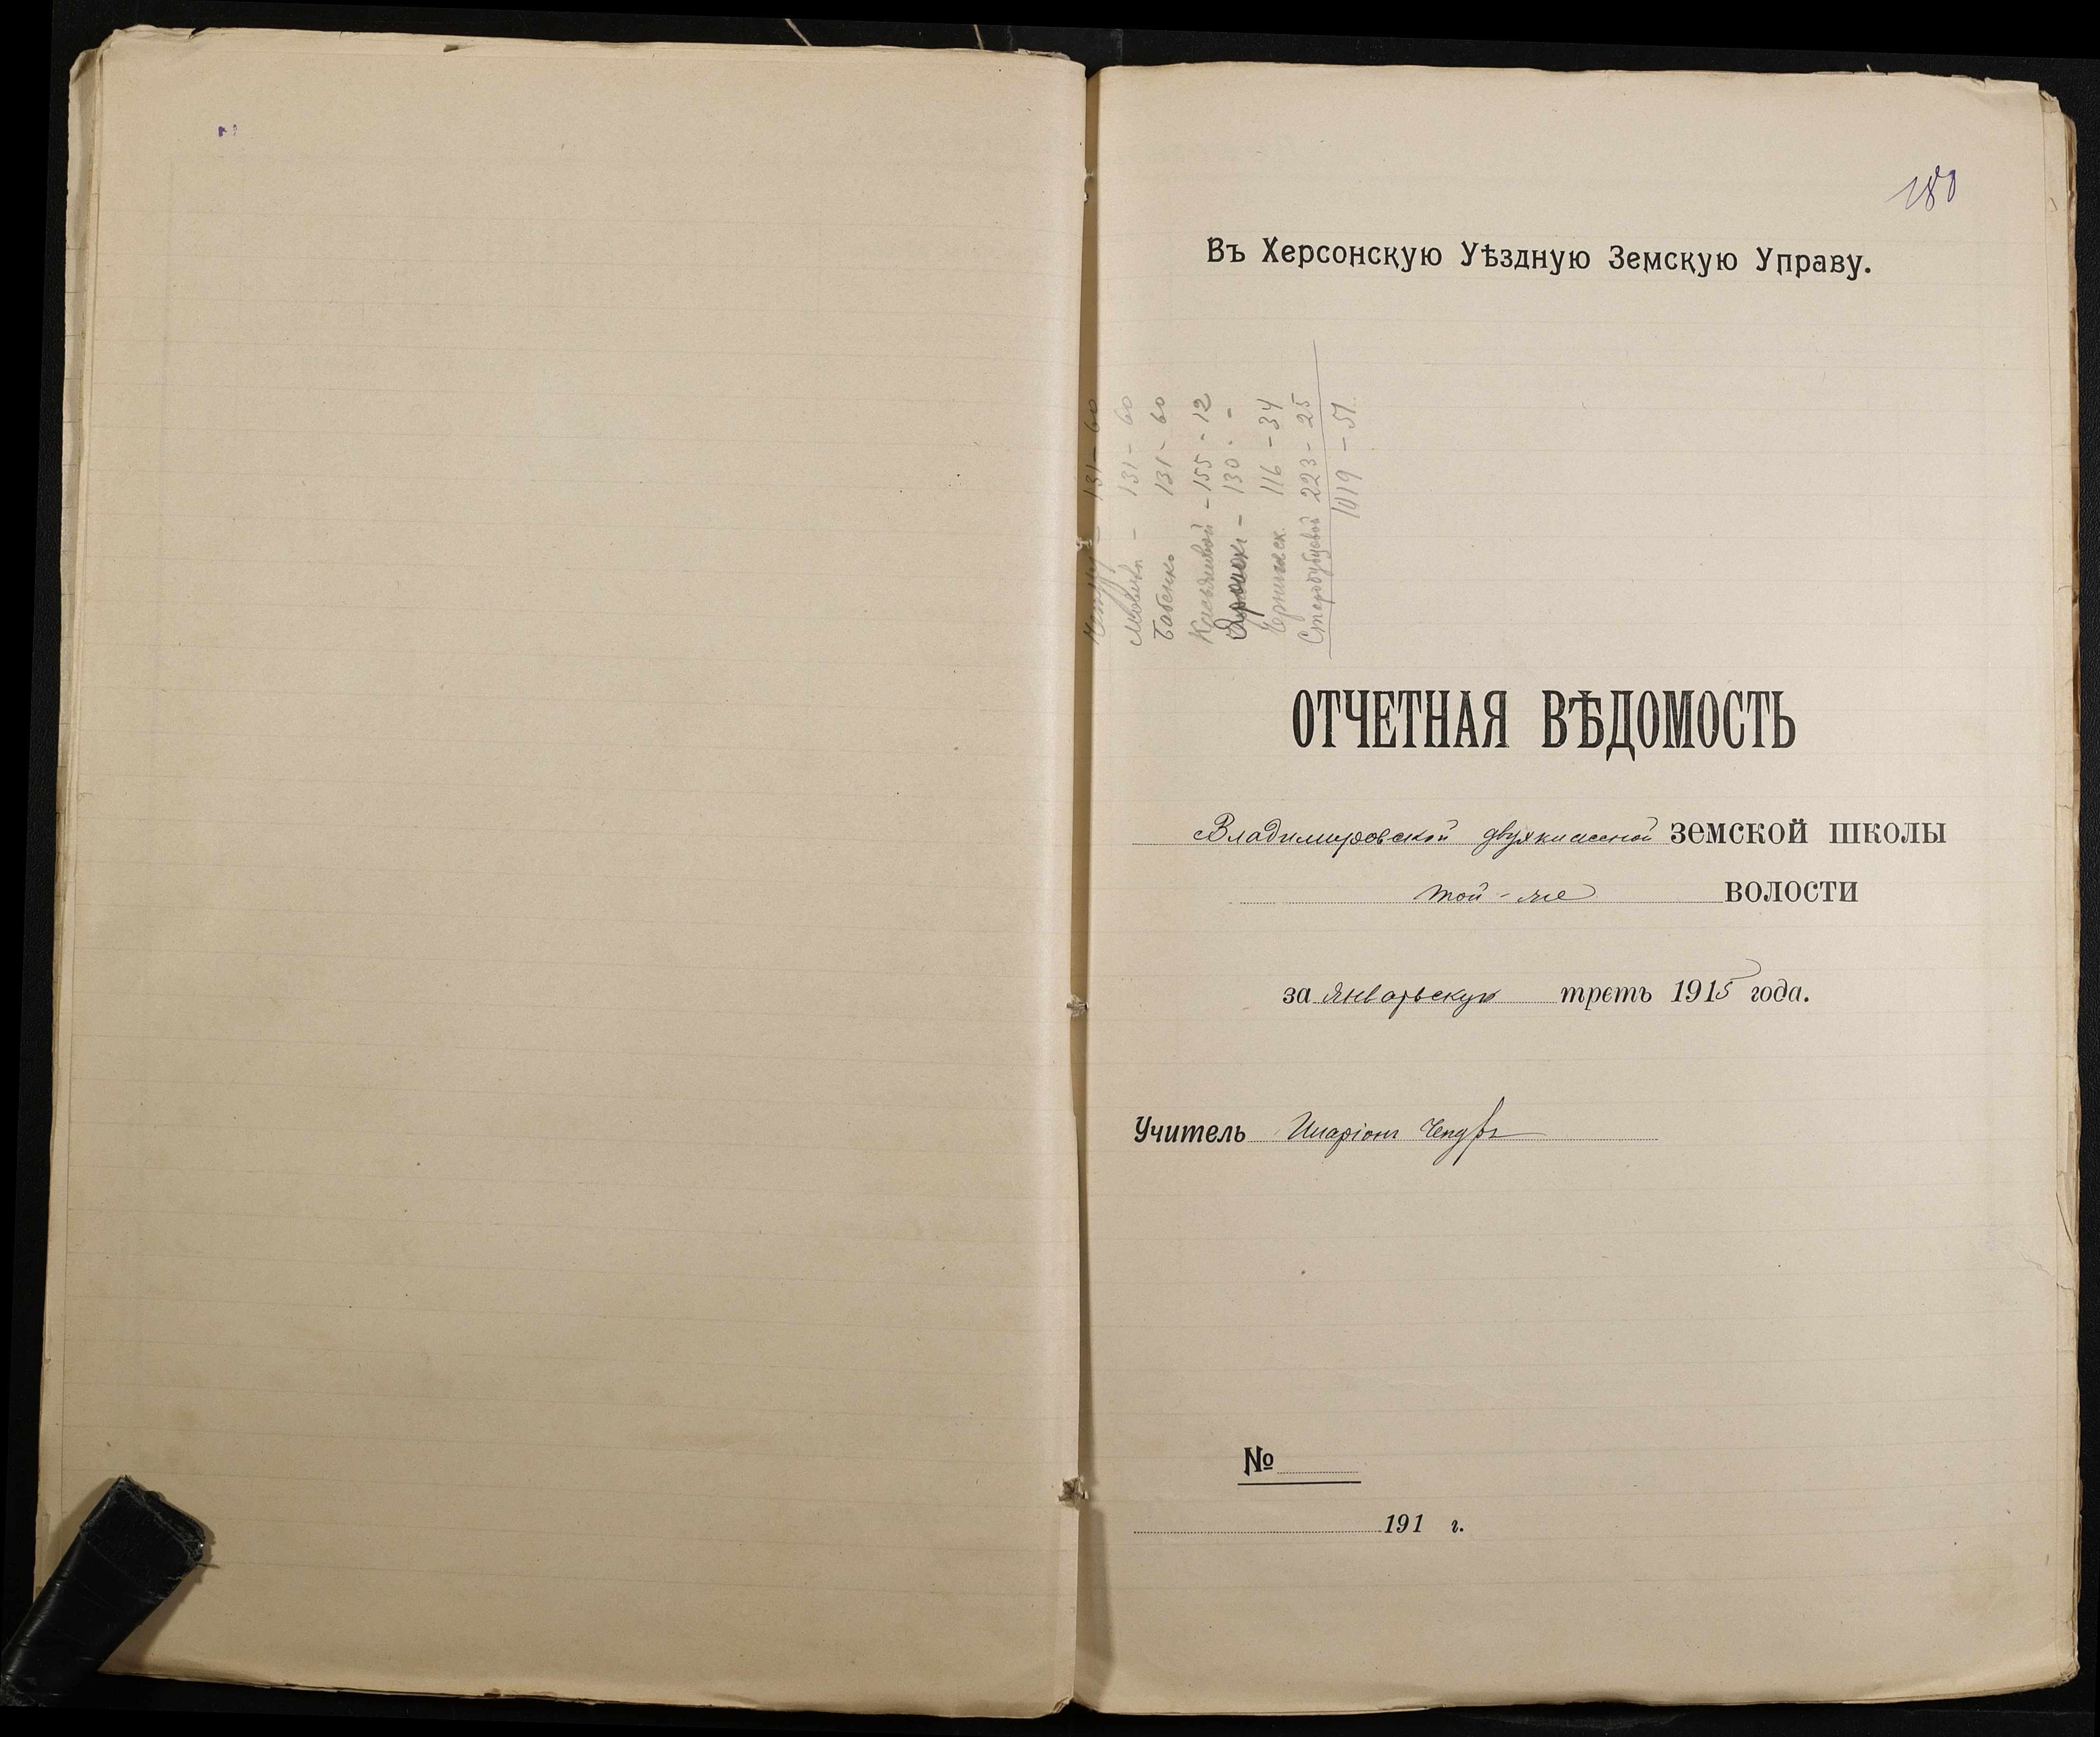 180
Въ Херсонскую Уѣздную Земскую Управу.
131 - 60
131 - 60
Бабенко 131 - 60
155 - 12
130 - -
116 - 34
223 - 25
1019 - 51
ОТЧЕТНАЯ ВѢДОМОСТЬ
Владимировской двухклассной земской школы
той-же волости
за Январьскую треть 1915 года.
Учитель Иларіонъ
№
191 г.